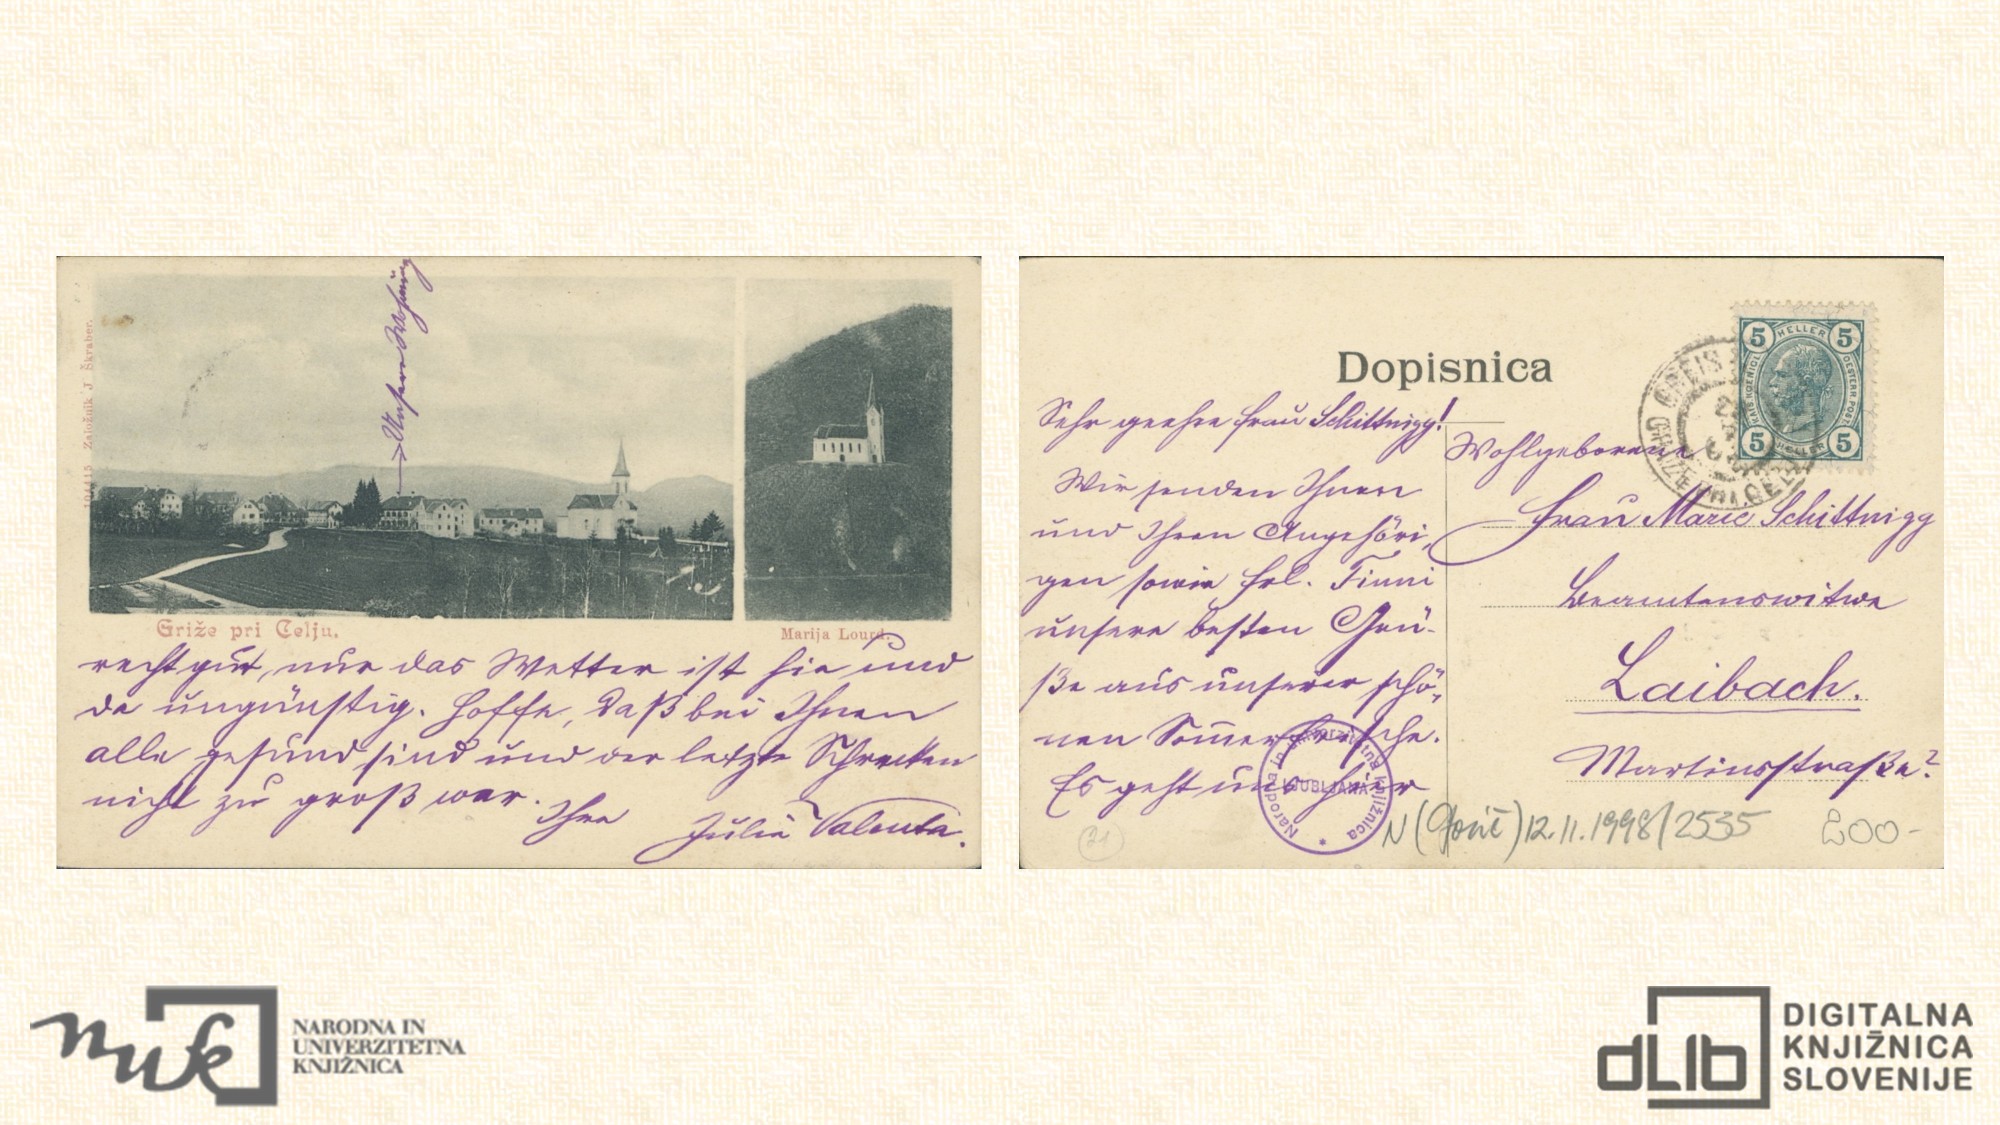 104415 Založnik J Škraber.
→ Unsere Wohnung
Griže pri Celju.
Marija Lourd.
recht gut, nur das Wetter ist hie und
da ungünstig. Hoffe, daß bei Ihnen
alle gesund sind und der letzte Schrecken
nicht zu groß war.
Ihre Julie Valenta.
Dopisnica
Sehr geehre Frau Schittnigg!
Wir senden Ihnen
und Ihren Angehöri-
gen sowie Frl. Finni
unsere besten Grü-
ße aus unserer schö-
nen Som̅erfrische.
Es geht uns hier
5 HELLER 5
KAIS. KOENIGL. OESTERR. POST.
5 HELLER 5
GRIŽE PRI CELJU
Wohlgeborene
Frau Marie Schittnigg
Beamtenswitwe
Laibach.
Martinsstraße?
Narodna in univerzitetna knjižnica
LJUBLJANA
21
N (Gorič) 12.11.1998/2535
200-
nuk
NARODNA IN
UNIVERZITETNA
KNJIŽNICA
dLib
DIGITALNA
KNJIŽNICA
SLOVENIJE